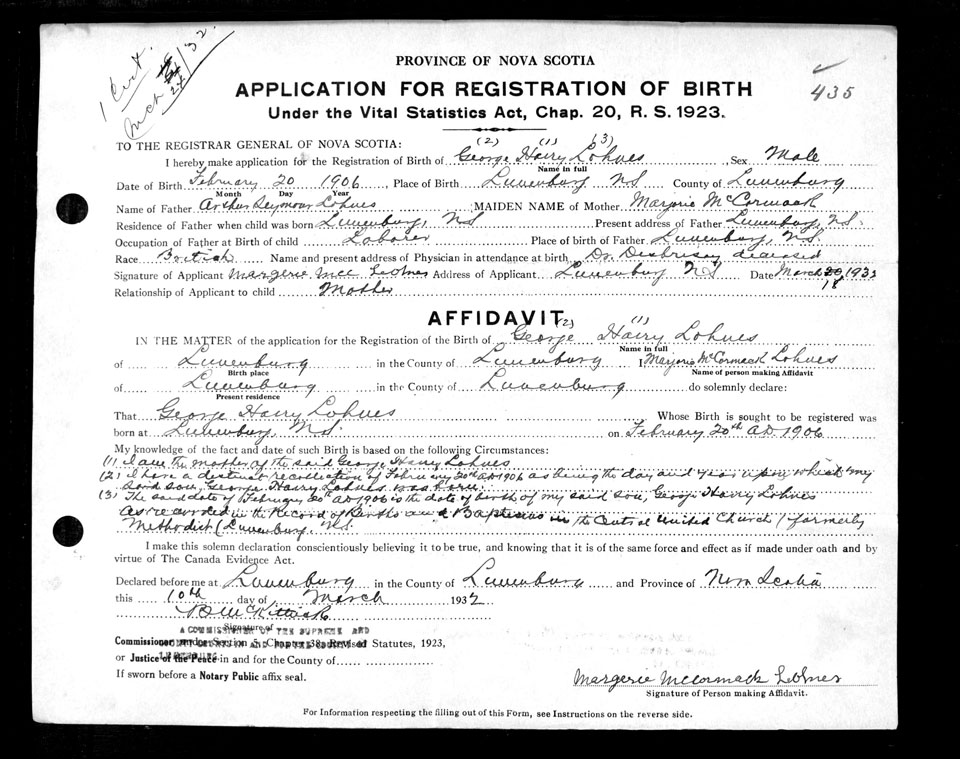 1 Cert.
Mch /32.
435
PROVINCE OF NOVA SCOTIA
APPLICATION FOR REGISTRATION OF BIRTH
Under the Vital Statistics Act, Chap. 20, R. S. 1923.
TO THE REGISTRAR GENERAL OF NOVA SCOTIA: (2) (1) (3)
I hereby make application for the Registration of Birth of George Harry Lohnes , Sex Male
Name in full
Date of Birth February 20 1906 , Place of Birth Lunenburg NS County of Lunenburg
Month Day Year
Name of Father Arthur Seymour Lohnes MAIDEN NAME of Mother Marjorie McCormack
Residence of Father when child was born Lunenburg, NS Present address of Father Lunenburg, NS.
Occupation of Father at Birth of child Laborer Place of birth of Father Lunenburg, NS.
Race British Name and present address of Physician in attendance at birth Dr. Desbrisay deceased
Signature of Applicant Margerie Mcc Lohnes Address of Applicant Lunenburg NS Date March 1932
18
Relationship of Applicant to child Mother
AFFIDAVIT
(2) (1)
IN THE MATTER of the application for the Registration of the Birth of George Harry Lohnes
Name in full
of Lunenburg in the County of Lunenburg I Marjorie McCormack Lohnes
Birth place Name of person making Affidavit
of Lunenburg in the County of Lunenburg do solemnly declare:
Present residence
That George Harry Lohnes Whose Birth is sought to be registered was
born at Lunenburg, NS. on February 20th AD 1906
My knowledge of the fact and date of such Birth is based on the following Circumstances:
(1) I am the mother of the said George Harry Lohnes
(2) I have a distinct recollection of February 20th AD 1906 as being the day and year upon which my
said son, George Harry Lohnes was born.
(3) The said date of February 20th AD 1906 is the date of birth of my said son, George Harry Lohnes
as recorded in the Record of Births and Baptisms in the Central United Church (formerly
Methodist) Lunenburg, NS.
I make this solemn declaration conscientiously believing it to be true, and knowing that it is of the same force and effect as if made under oath and by
virtue of The Canada Evidence Act.
Declared before me at Lunenburg in the County of Lunenburg and Province of Nova Scotia
this 10th day of March 1932
McKittrick
Signature of
A COMMISSIONER OF THE SUPREME AND
Commissioner under Section 5, Chapter 38, Revised Statutes, 1923,
or Justice of the Peace in and for the County of
If sworn before a Notary Public affix seal.
Margerie McCormack Lohnes
Signature of Person making Affidavit.
For Information respecting the filling out of this Form, see Instructions on the reverse side.